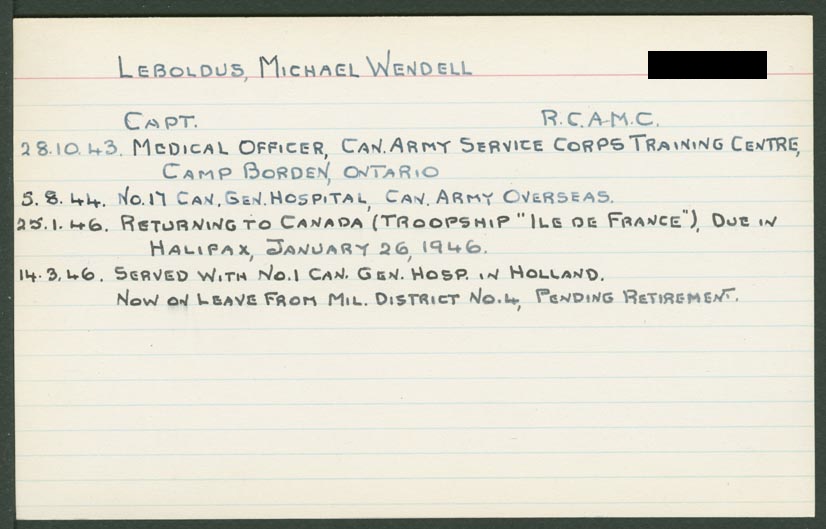 LEBOLDUS, MICHAEL WENDELL
CAPT. R.C.A.M.C.
28.10.43. MEDICAL OFFICER, CAN. ARMY SERVICE CORPS TRAINING CENTRE,
CAMP BORDEN, ONTARIO
5.8.44. NO.17 CAN. GEN. HOSPITAL, CAN. ARMY OVERSEAS.
25.1.46. RETURNING TO CANADA (TROOPSHIP "ILE DE FRANCE"), DUE IN
HALIFAX, JANUARY 26, 1946.
14.3.46. SERVED WITH NO.1 CAN. GEN. HOSP. IN HOLLAND.
NOW ON LEAVE FROM MIL. DISTRICT NO.4, PENDING RETIREMENT.